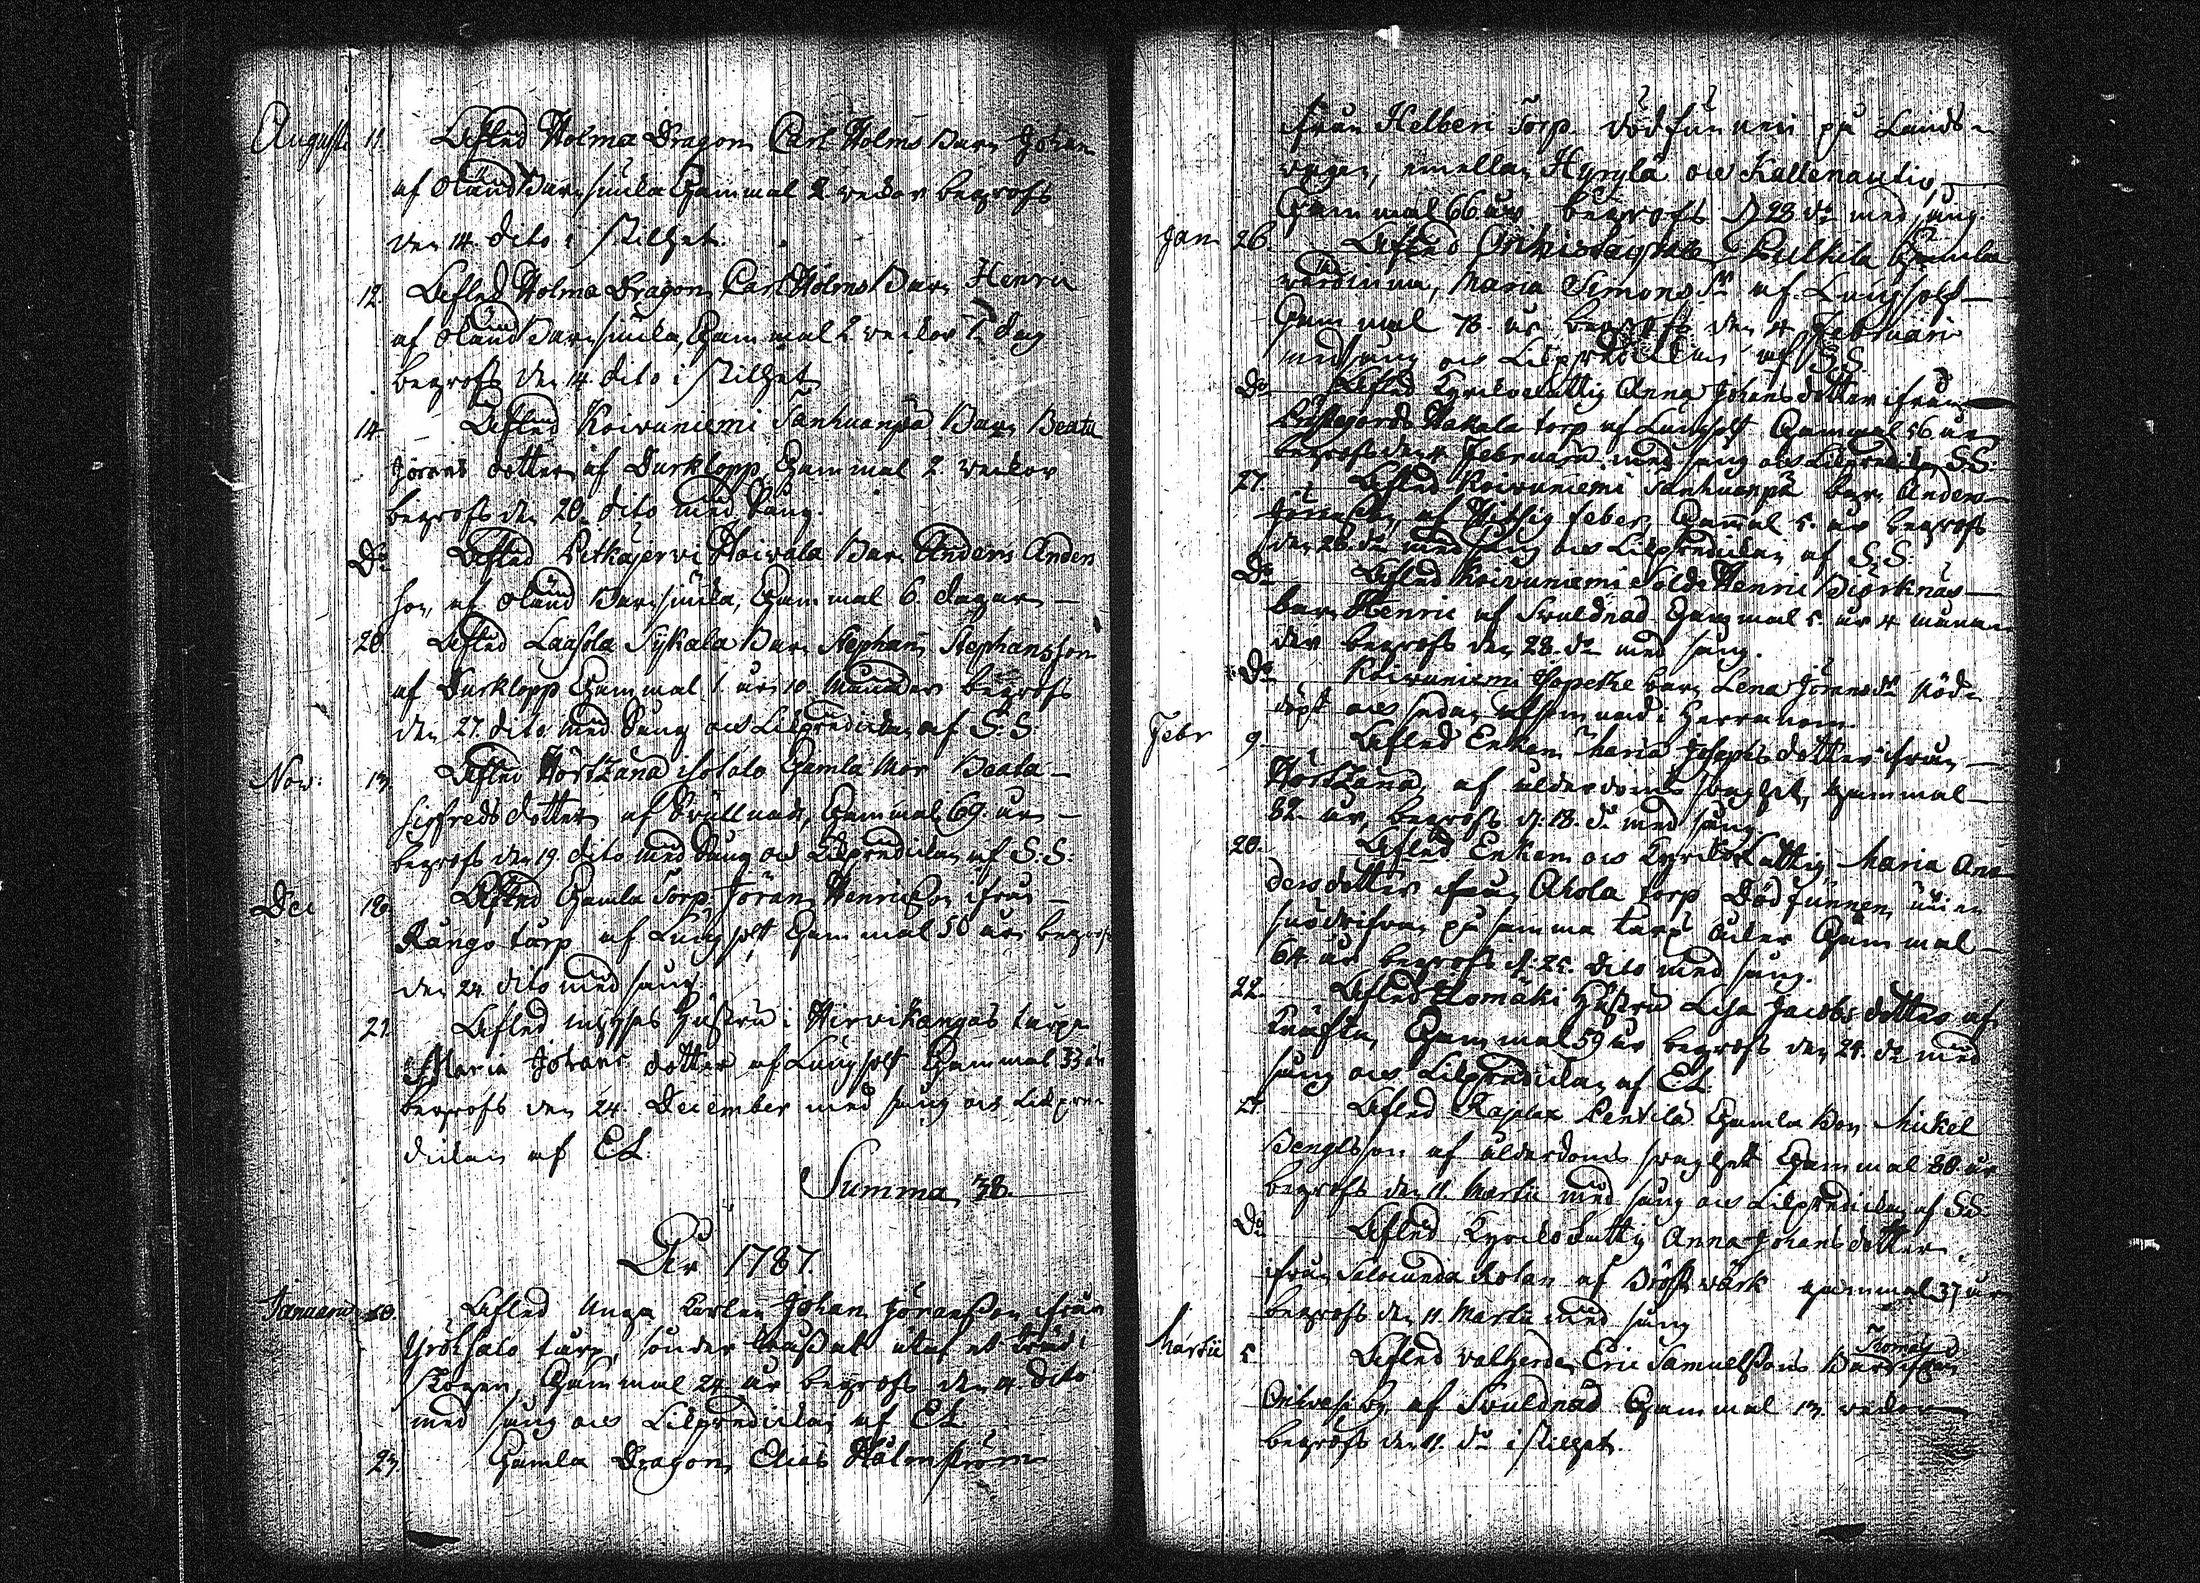 Augusti 11. Afled Holma Dragon Carl Holms Barn Johan
af okänd Barnsjuka Gammal 2 veckor begrofs
den 14. dito i stillhet.
12. Afled Holma Dragon Carl Holms Barn Henric
af okänd Barnsjuka, Gammal 2 veckor 1. dag
begrofs den 14 dito i stillhet
14. Afled Koivuniemi Sanhuanpä Barn Beata
Jörans dotter af Durklopp Gammal 2. veckor
begrofs den 20. dito med Sång.
Do Afled Pitkäjervi Hoivala Barn Anders Anders
son, af okänd Barnsjuka, Gammal 6. dagar
20 Afled Laasola Sykala Barn Stephan Stephansson
af Durklopp Gammal 1. år 10. månader begrofs
den 27. dito med Sång och Likpredikan af S.S.
Nov: 13. Afled isotalo Gamla Mor Beata
Sigfreds dotter af Gammal 69. år
begrofs den 19. dito med Sång och Likpredikan af S.S.
Dec 19 Afled Gamla Torp. Jöran Henricson ifrån
Kango torp af Lungsott Gammal 50 år begrofs
den 24 dito med sång.
21. Afled Hustru i Hirvikangas torp
Maria Johans dotter af Lungsott Gammal 33 år
begrofs den 24. December med sång och Likpre-
dikan af EL.
Summa 38.
År 1787.
Januarii 10. Afled unga Karlen Johan Jöransson ifrån
Yröhsalo torp, sönder af et träd i
skogen, Gammal 24 år begrofs den dito
med sång och Likpredikan af EL
23. Gamla Dragon Elias Hålmström
ifrån Helberi Torp. död funnen på Lands-
vägen, emellan Hyrylä och Kallenautio,
Gammal 66 år begrofs d. 28 do med sång.
Jan 26. Afled Pulkila Gamla
värdinna, Maria Simons dr af Lungsott
Gammal 78. år begrofs den 4 Februarii
med sång och Likpredikan af S.S.
Do Afled Kyrkofattig Anna Johans dotter ifrån
Prästegårds Hakala torp af Lungsott Gammal 56 år
begrofs den 4 Februarii med sång och Likpredikn S.S.
27. Afled Koivuniemi Sanhuanpä barn Anders
Jöransson af Hitsig feber, Gammal 5. år begrofs
den 28. do med sång och Likpredikan af S.S.
Do Afled Koivuniemi Sold. Henric Biörknäs
barn Henric af Gammal 5. år 4 måna-
der begrofs den 28. do med sång.
Do Koivuniemi Hopeke barn Lena Jörans dr nöd-
döpt och sedan afsomnad i Herranom.
Febr 9. Afled Enkan Maria Josephs dotter ifrån
af ålderdoms svaghet, Gammal
82. år, begrofs d. 18. do med sång
20. Afled Enkan och Kyrkofattig Maria An-
ders dotter ifrån Ahola torp Död funnen
på samma torps åker Gammal
64 år begrofs d. 25. dito med sång.
22. Afled Homäki Hustru Lisa Jacobs dotter af
Kräfta, Gammal 59 år begrofs den 24. do med
sång och Likpredikan af EL.
Afled Rajalax Pentilä Gamla Bon. Mickel
Bengtsson af ålderdoms svaghet Gammal 80 år
begrofs den 11. Martii med sång och Likpredikan af S.S.
Do Afled Kyrko fattig Anna Johans dotter
ifrån af Bröst värk gammal 37 år
begrofs den 11. Martii med sång
Martii 5 Afled Eric Samuelssons Barn Thomas
af Gammal 13. veckor
begrofs den 11. do i stillhet.